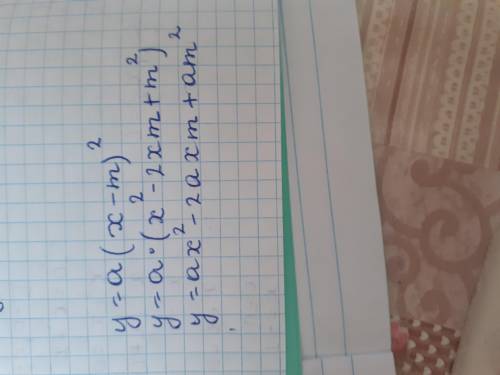 y=a(x-m)²
y=a·(x²-2xm+m²)
y=ax²-2axm+am²